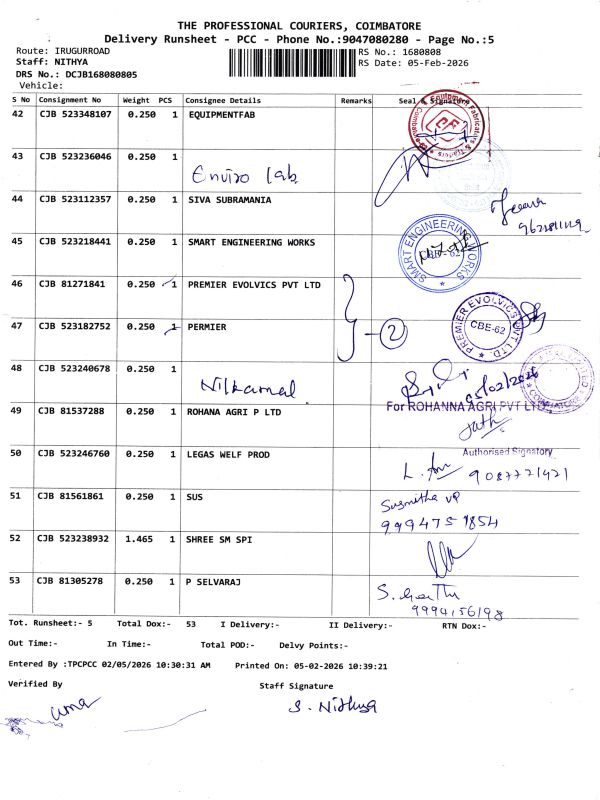 THE PROFESSIONAL COURIERS, COIMBATORE
Delivery Runsheet - PCC - Phone No.:9047080280 - Page No.:5
Route: IRUGURROAD
Staff: NITHYA
RS No.: 1680808
RS Date: 05-Feb-2026
DRS No.: DCJB168080805
Vehicle:
S No Consignment No Weight PCS Consignee Details Remarks Seal & Signature
42 CJB 523348107 0.250 1 EQUIPMENTFAB
43 CJB 523236046 0.250 1
Enviro lab
44 CJB 523112357 0.250 1 SIVA SUBRAMANIA
45 CJB 523218441 0.250 1 SMART ENGINEERING WORKS
SMART ENGINEERING WORKS
CBE - 62
46 CJB 81271841 0.250 1 PREMIER EVOLVICS PVT LTD
47 CJB 523182752 0.250 1 PERMIER
2
PREMIER EVOLVICS PVT LTD
CBE-62
48 CJB 523240678 0.250 1
Nilkamal
05/02/2026
49 CJB 81537288 0.250 1 ROHANA AGRI P LTD
For ROHANNA AGRI PVT LTD
Authorised Signatory
50 CJB 523246760 0.250 1 LEGAS WELF PROD
9087721421
51 CJB 81561861 0.250 1 SUS
Susmitha VP
9994751854
52 CJB 523238932 1.465 1 SHREE SM SPI
53 CJB 81305278 0.250 1 P SELVARAJ
9994156198
Tot. Runsheet:- 5 Total Dox:- 53 I Delivery:- II Delivery:- RTN Dox:-
Out Time:- In Time:- Total POD:- Delvy Points:-
Entered By :TPCPCC 02/05/2026 10:30:31 AM Printed On: 05-02-2026 10:39:21
Verified By Staff Signature
uma
S. Nithya